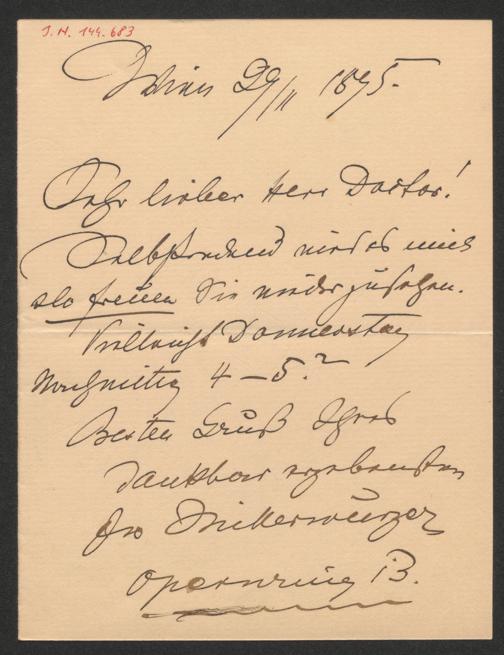 J.N. 144.683
Wien 29/II 1895.
Sehr lieber Herr Doctor!
Selbstredend wird es mich
so freuen Sie wiederzusehen.
Vielleicht Donnerstag
Nachmittag 4–5.?
Besten Gruß Ihres
dankbar ergebensten
Mitterwurzer
Opernring 13.